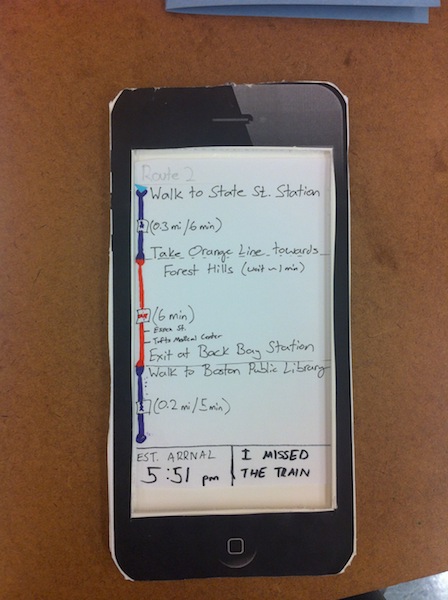 Route 2
Walk to State St. Station
(0.3 mi/6 min)
Take Orange Line towards
Forest Hills (wait ~ 1 min)
(6 min)
Essex St.
Tufts Medical Center
Exit at Back Bay Station
Walk to Boston Public Library
(0.2 mi/5 min)
EST. ARRIVAL
5:51 pm
I MISSED
THE TRAIN